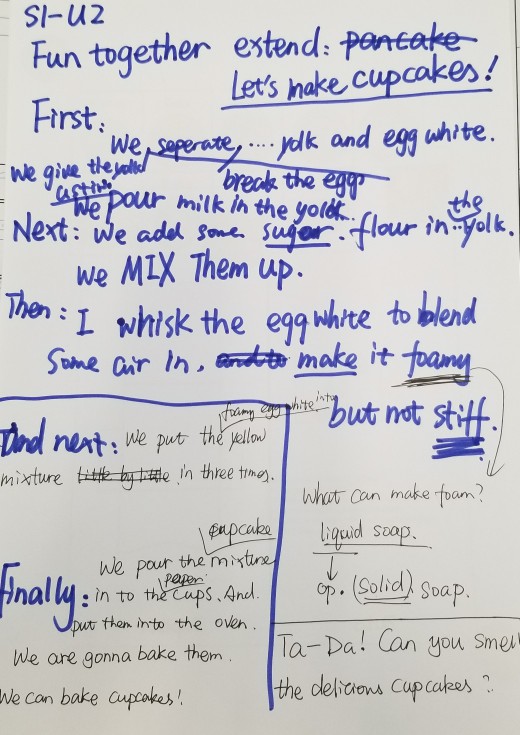 S1-U2
Fun together extend: pancake
Let's make cupcakes!
First:
We seperate, .... yolk and egg white.
We give the
break the egg
We pour milk in the
the
Next: We add some sugar. flour in .. yolk.
We MIX Them up.
Then: I whisk the egg white to blend
Some air in, and to make it foamy
but not stiff.
foamy egg white into
And next: We put the yellow
mixture little by little in three times.
cupcake
We pour the mixture
paper
Finally: in to the cups. And.
put them into the oven.
We are gonna bake them.
We can bake cupcakes!
What can make foam?
liquid soap.
op. (Solid) soap.
Ta-Da! Can you smell
the delicious cupcakes?